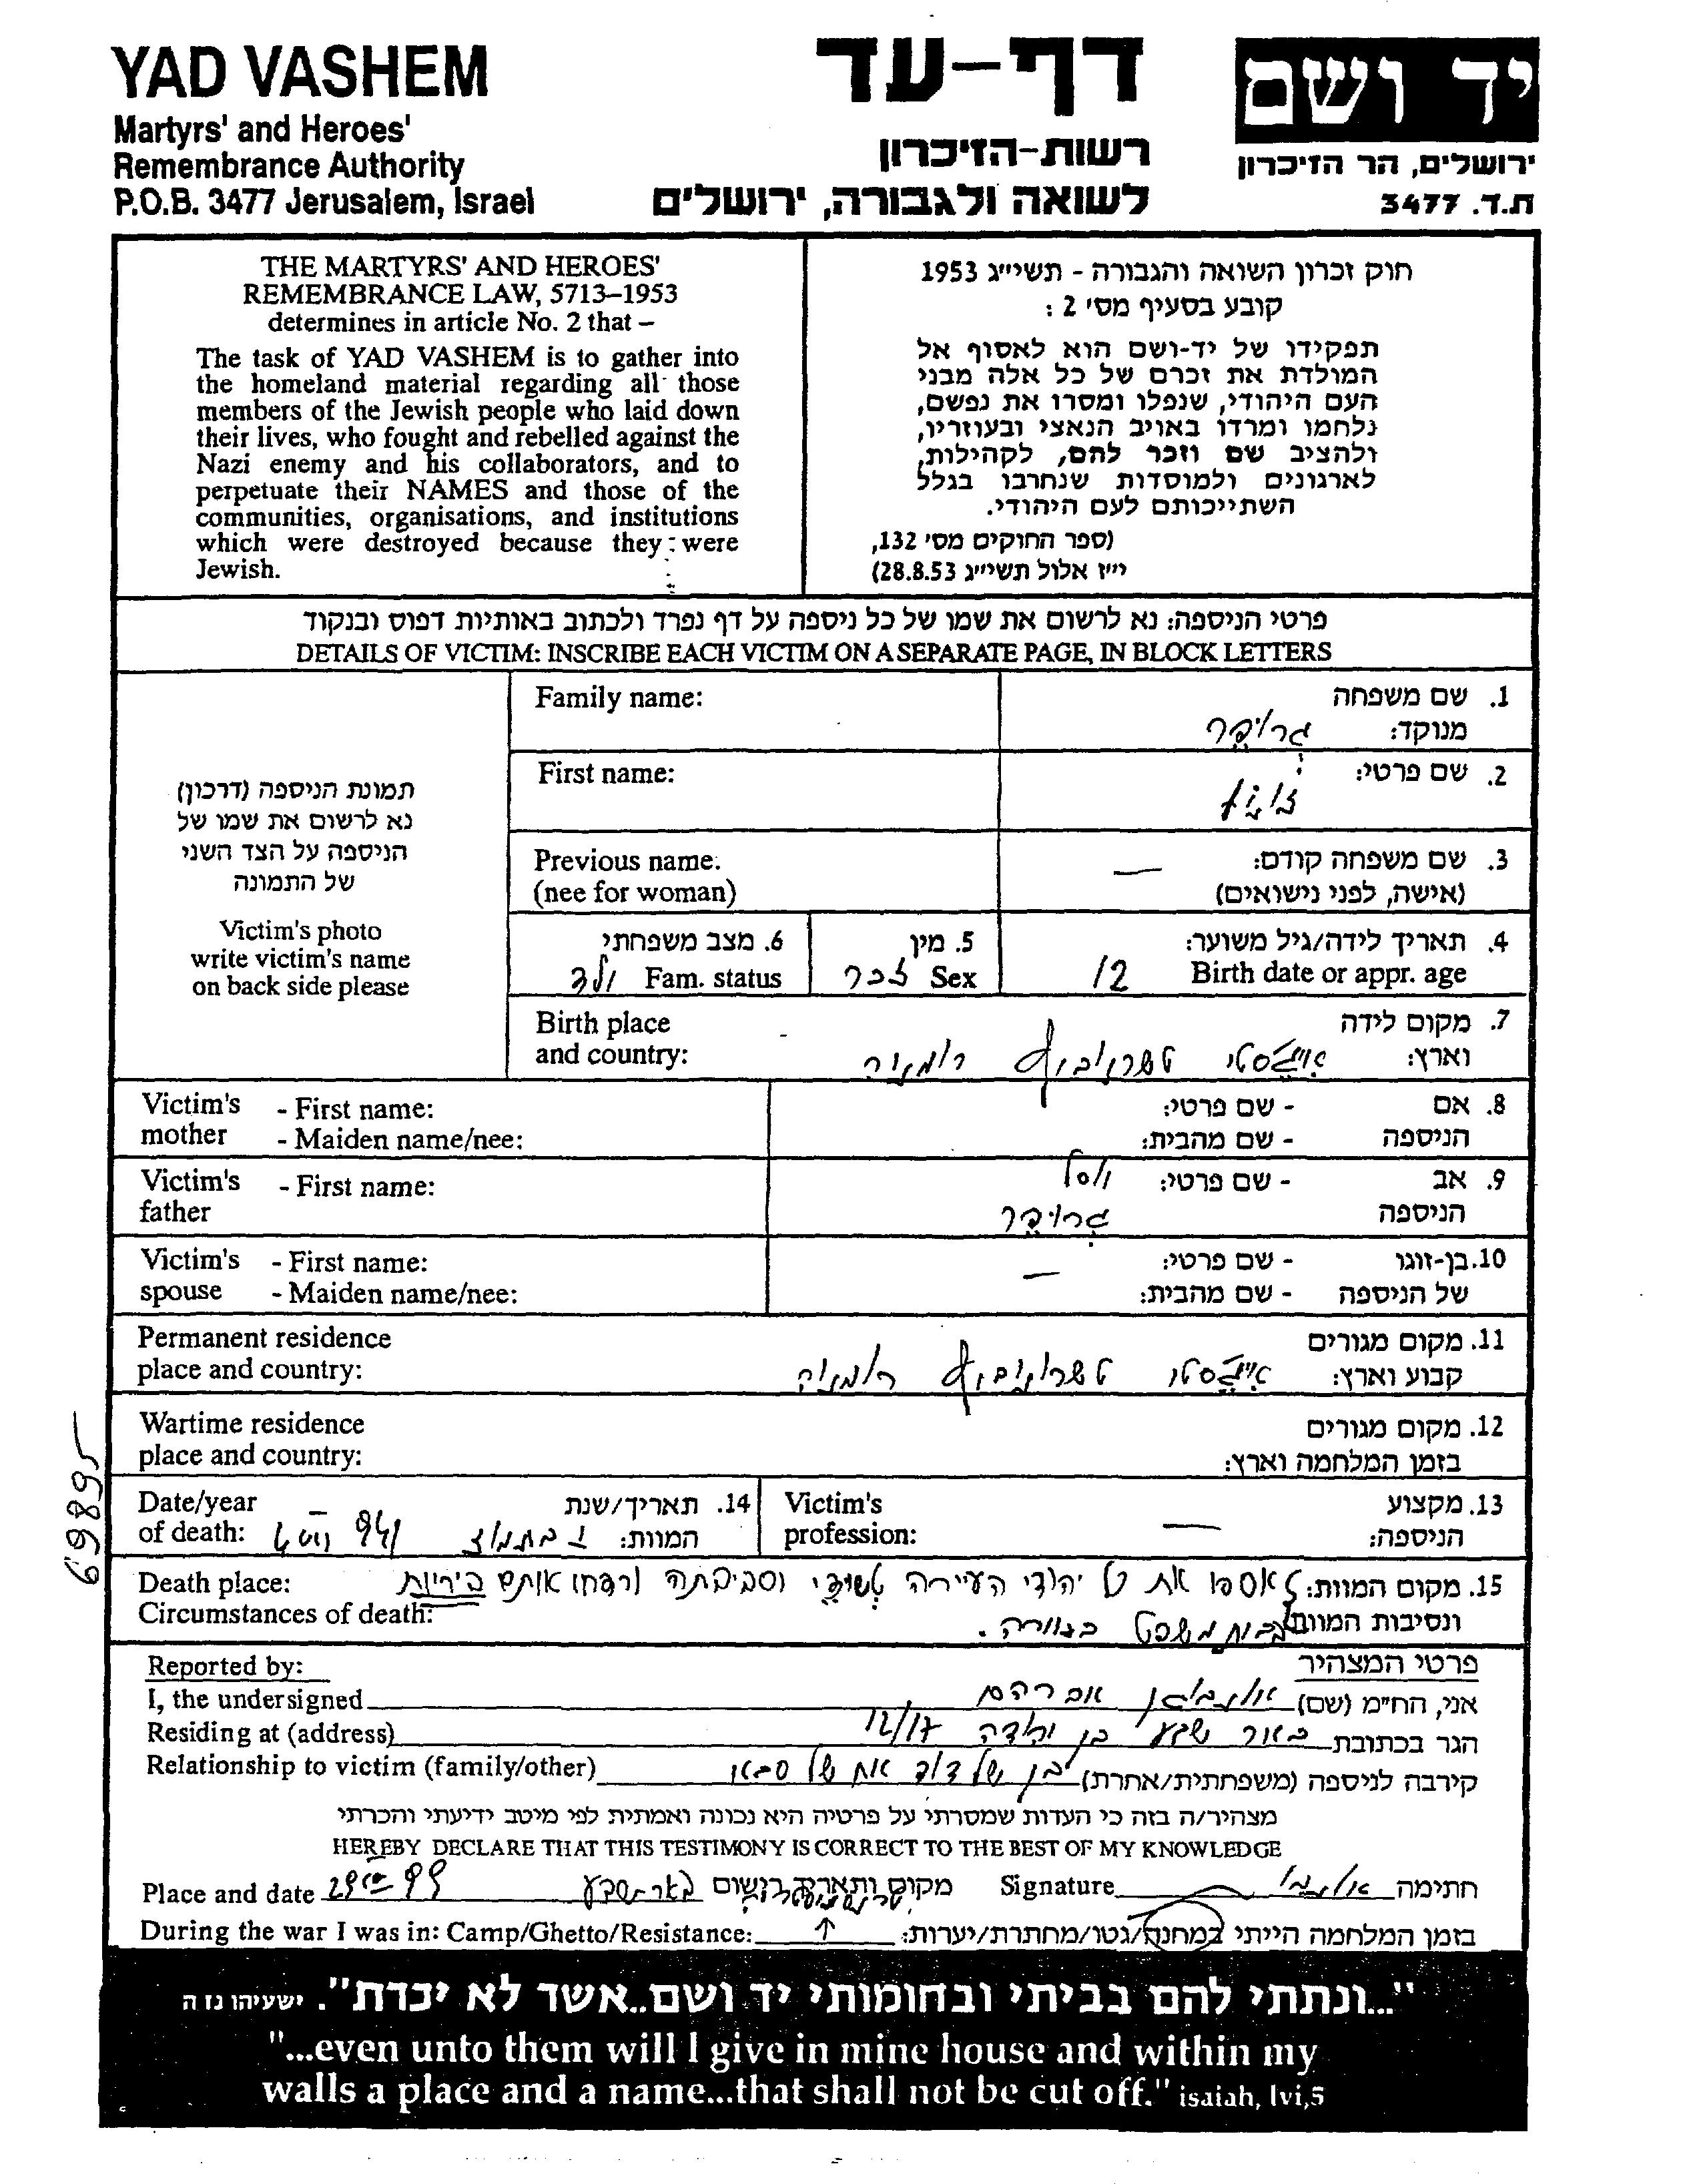 YAD VASHEM
Martyrs' and Heroes'
Remembrance Authority
P.O.B. 3477 Jerusalem, Israel
דף-עד
רשות-הזיכרון
לשואה ולגבורה, ירושלים
יד ושם
ירושלים, הר הזיכרון
ת.ד. 3477
THE MARTYRS' AND HEROES'
REMEMBRANCE LAW, 5713–1953
determines in article No. 2 that –
The task of YAD VASHEM is to gather into
the homeland material regarding all those
members of the Jewish people who laid down
their lives, who fought and rebelled against the
Nazi enemy and his collaborators, and to
perpetuate their NAMES and those of the
communities, organisations, and institutions
which were destroyed because they were
Jewish.
חוק זכרון השואה והגבורה - תשי״ג 1953
קובע בסעיף מס׳ 2 :
תפקידו של יד-ושם הוא לאסוף אל
המולדת את זכרם של כל אלה מבני
העם היהודי, שנפלו ומסרו את נפשם,
נלחמו ומרדו באויב הנאצי ובעוזריו,
ולהציב שם וזכר להם, לקהילות,
לארגונים ולמוסדות שנחרבו בגלל
השתייכותם לעם היהודי.
(ספר החוקים מס׳ 132,
י״ז אלול תשי״ג 28.8.53)
פרטי הניספה: נא לרשום את שמו של כל ניספה על דף נפרד ולכתוב באותיות דפוס ובנקוד
DETAILS OF VICTIM: INSCRIBE EACH VICTIM ON A SEPARATE PAGE, IN BLOCK LETTERS
תמונת הניספה (דרכון)
נא לרשום את שמו של
הניספה על הצד השני
של התמונה
Victim's photo
write victim's name
on back side please
Family name:
1. שם משפחה
מנוקד: גרויבר
First name:
2. שם פרטי:
Previous name.
(nee for woman)
3. שם משפחה קודם: —
(אישה, לפני נישואים)
4. תאריך לידה/גיל משוער:
Birth date or appr. age 12
5. מין
Sex זכר
6. מצב משפחתי
Fam. status ילד
Birth place
and country:
7. מקום לידה
וארץ: טשרנוביץ רומניה
Victim's mother
- First name:
- Maiden name/nee:
8. אם הניספה
- שם פרטי:
- שם מהבית:
Victim's father
- First name:
9. אב הניספה
- שם פרטי: יוסל
גרויבר
Victim's spouse
- First name:
- Maiden name/nee:
10. בן-זוגו של הניספה
- שם פרטי: —
- שם מהבית:
Permanent residence
place and country:
11. מקום מגורים
קבוע וארץ: טשרנוביץ רומניה
Wartime residence
place and country:
12. מקום מגורים
בזמן המלחמה וארץ:
Victim's
profession:
13. מקצוע
הניספה: —
Date/year
of death:
14. תאריך/שנת
המוות: ב בתמוז
Death place:
Circumstances of death:
15. מקום המוות: אספו את כל יהודי העיירה וסביבתה ורצחו אותם ביריות
ונסיבות המוות
69895
Reported by:
פרטי המצהיר
I, the undersigned
אני, הח״מ (שם) אברהם
Residing at (address)
הגר בכתובת באר שבע בן יהודה 12/17
Relationship to victim (family/other)
קירבה לניספה (משפחתית/אחרת) בן של דוד אח של סבא
מצהיר/ה בזה כי העדות שמסרתי על פרטיה היא נכונה ואמתית לפי מיטב ידיעתי והכרתי
HEREBY DECLARE THAT THIS TESTIMONY IS CORRECT TO THE BEST OF MY KNOWLEDGE
Place and date
מקום ותאריך רישום באר שבע
Signature
חתימה
During the war I was in: Camp/Ghetto/Resistance:
בזמן המלחמה הייתי במחנה/גטו/מחתרת/יערות:
"...ונתתי להם בביתי ובחומותי יד ושם..אשר לא יכרת". ישעיהו נו ה
"...even unto them will I give in mine house and within my
walls a place and a name...that shall not be cut off." isaiah, lvi,5